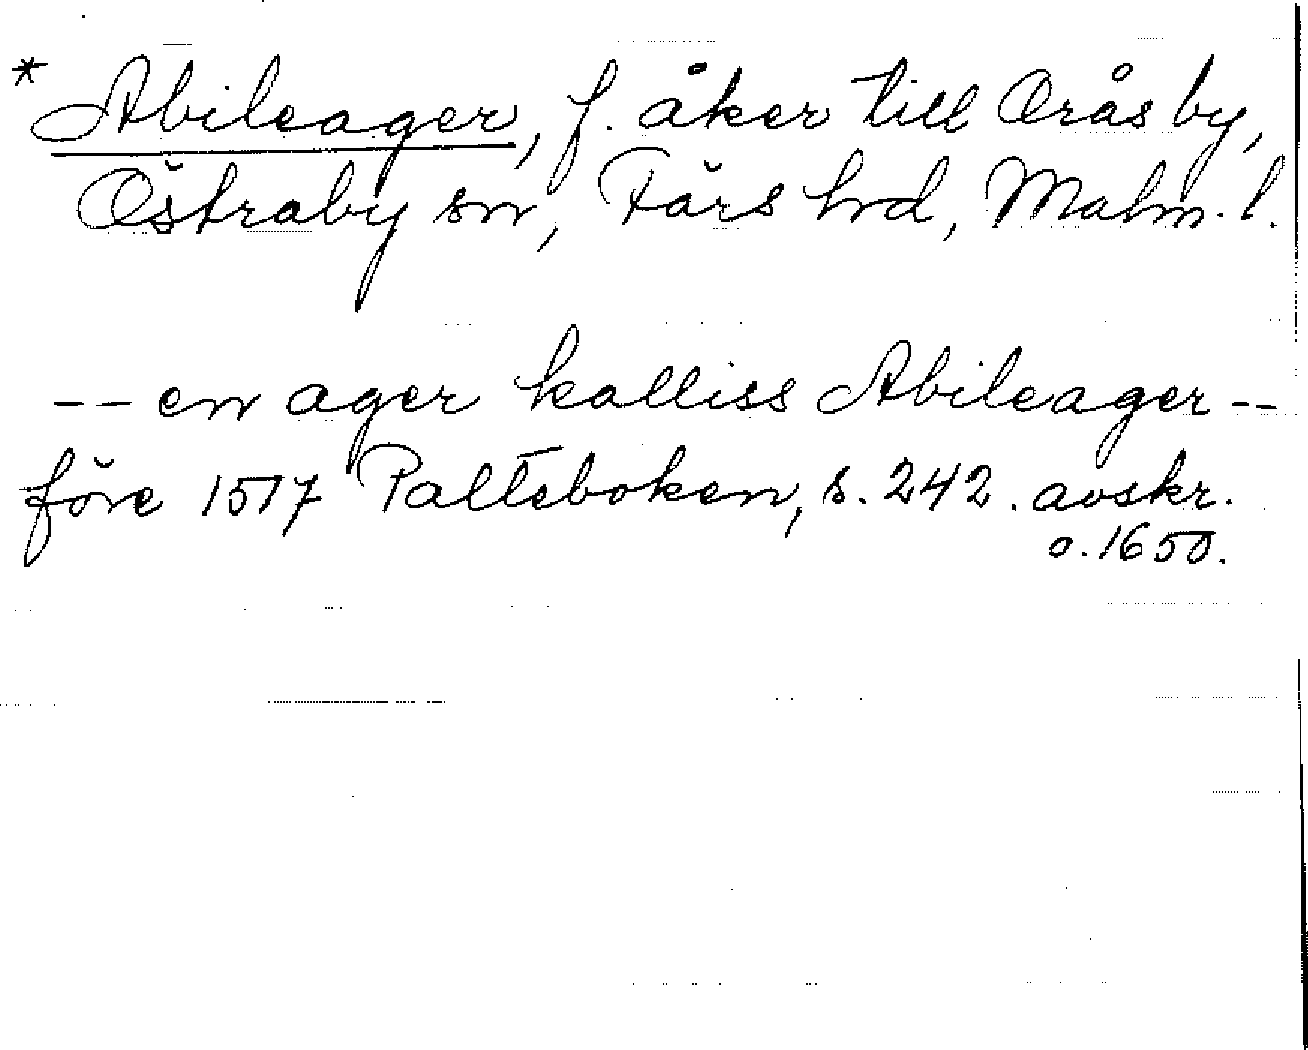 * Abileager, f. åker till Orås by,
Östraby sn, Färs hrd, Malm. l.
-- en ager kalliss Abileager --
före 1517 Palteboken, s. 242. avskr.
o. 1650.